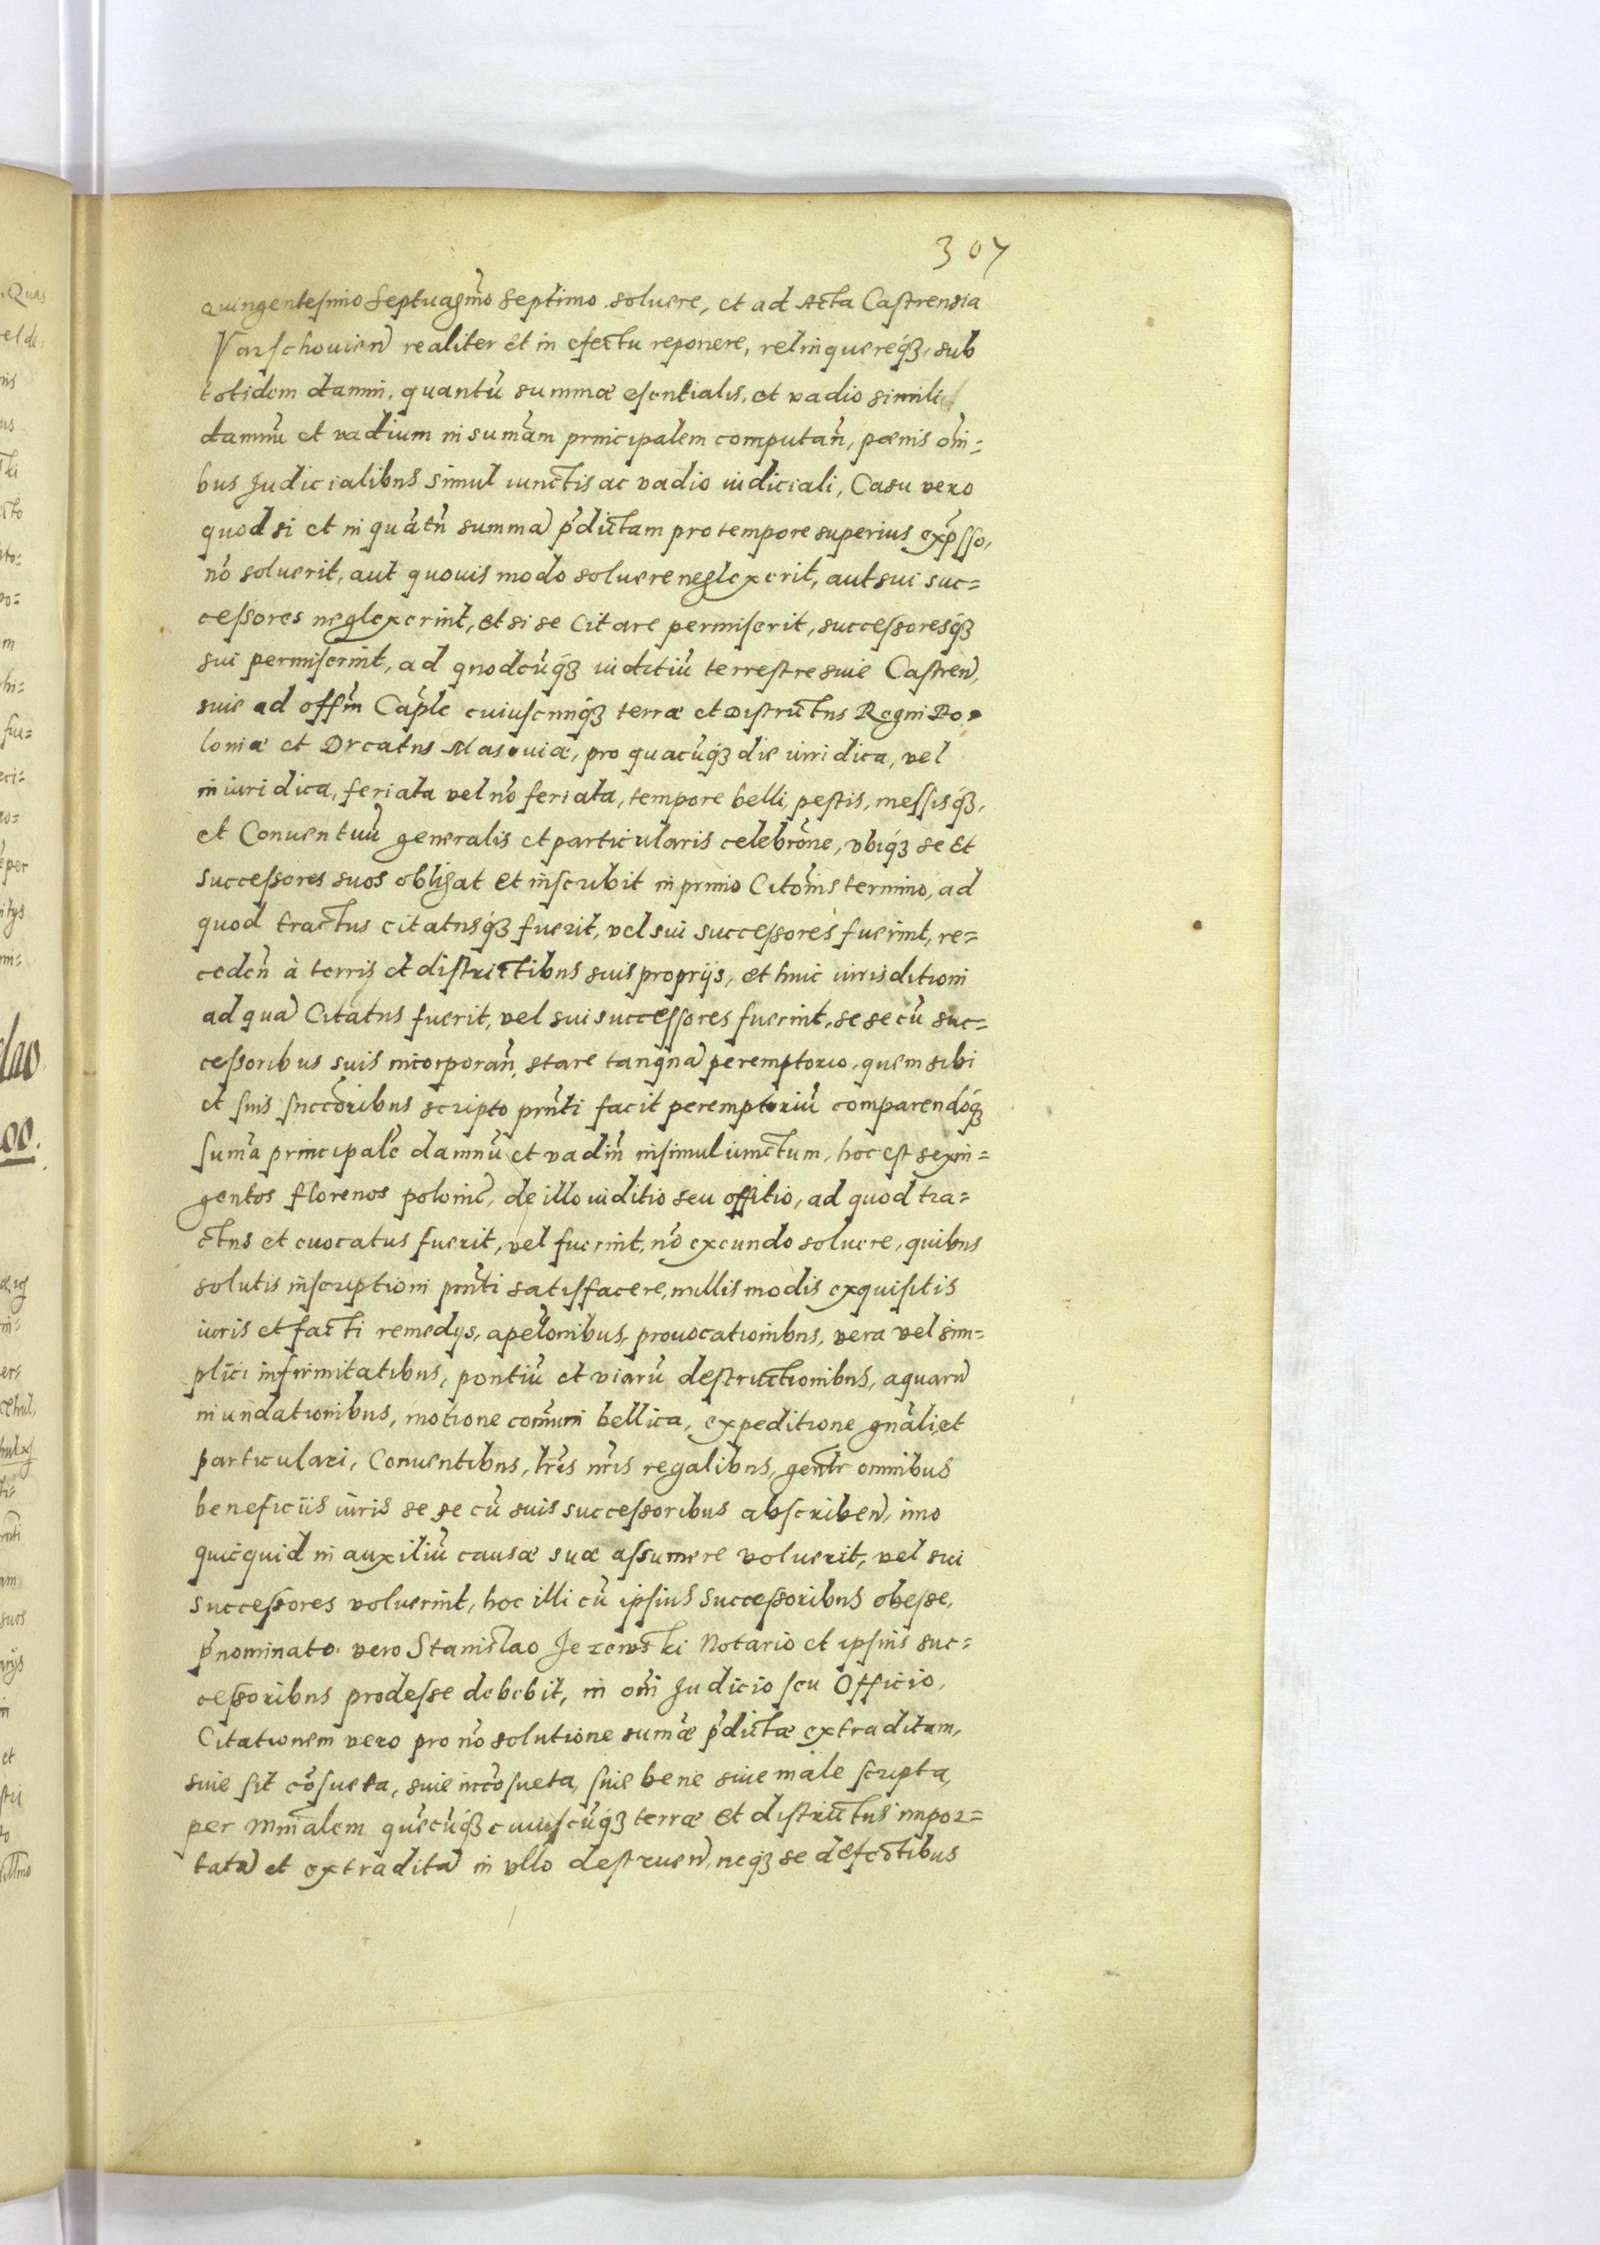 307
quingentesimo septuagmo septimo soluere, et ad Acta Castrensia
Varschouien realiter et in efectu reponere, relinquereqȝ, sub
totidem damni, quantū summæ esentialis, et vadio simili
damnū et vadium in sumām principalem computan̄, pœnis om̄i=
bus Judicialibus simul iunctis ac vadio iudiciali, Casu vero
quod si et in quātn̄ summā p̄dictam pro tempore superius exp̄sso,
nō soluerit, aut quouis modo soluere neglexerit, aut sui suc=
cessores neglexerint, et si se citare permiserit, successoresqȝ
sui permiserint, ad quodcūqȝ iuditiū terrestre siue Castren̄,
siue ad offm̄ Cap̄le cuiuscunqȝ terræ et Districtus Regni Po=
loniæ et Ducatus Masouiæ, pro quacūqȝ die iuridica, vel
iniuridica, feriata vel nō feriata, tempore belli, pestis, messisqȝ,
et Conuentuū generalis et particularis celebrōne, vbiqȝ se et
successores suos obligat et inscribit in primo Citōnis termino, ad
quod tractus citatusqȝ fuerit, vel sui successores fuerint, re=
ceden̄ à terris et districtibus suis proprijs, et huic iurisditioni
ad quā Citatus fuerit, vel sui successores fuerint, se se cū suc=
cessoribus suis incorporan̄, stare tanqnā peremptorio, quem sibi
et suis succōribus scripto prn̄ti facit peremptoriū comparendōqȝ
sumā principalē damnū et vadiū insimul iunctum, hoc est sexin=
gentos florenos polonic̄, de illo iuditio seu offitio, ad quod tra=
ctus et euocatus fuerit, vel fuerint, nō exeundo soluere, quibus
solutis inscriptioni prn̄ti satisfacere, nullis modis exquisitis
iuris et facti remedys, apelōnibus, prouocationibus, vera vel sim=
plici infirmitatibus, pontiū et viarū destructionibus, aquarū
inundationibus, motione comūni bellica, expeditione gnāli et
particulari, Conuentibus, lr̄is nr̄is regalibus, genlr̄ omnibus
beneficiis iuris se se cū suis successoribus abscriben̄, imo
quicquid in auxiliū causæ suæ assumere voluerit, vel sui
successores voluerint, hoc illi cū ipsius successoribus obesse,
p̄nominato vero Stanislao Jezewski Notario et ipsius suc=
cessoribus prodesse debebit, in om̄i Judicio seu Officio,
Citationem vero pro nō solutione sumæ p̄dictæ extraditam,
siue sit cōsueta, siue incōsueta, siue bene siue male scripta,
per Mm̄alem quēcūqȝ cuiuscūqȝ terræ et districtus impor=
tatā et extraditā in vllo destruen̄, neqȝ se defectibus